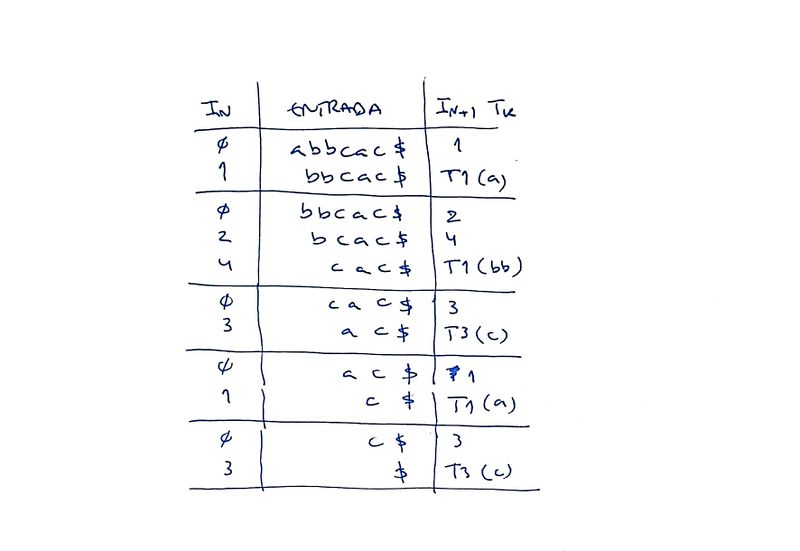 IN ENTRADA IN+1 TK
∅ abbcac$ 1
1 bbcac$ T1(a)
∅ bbcac$ 2
2 bcac$ 4
4 cac$ T1(bb)
∅ cac$ 3
3 ac$ T3(c)
∅ ac$ 1
1 c$ T1(a)
∅ c$ 3
3 $ T3(c)